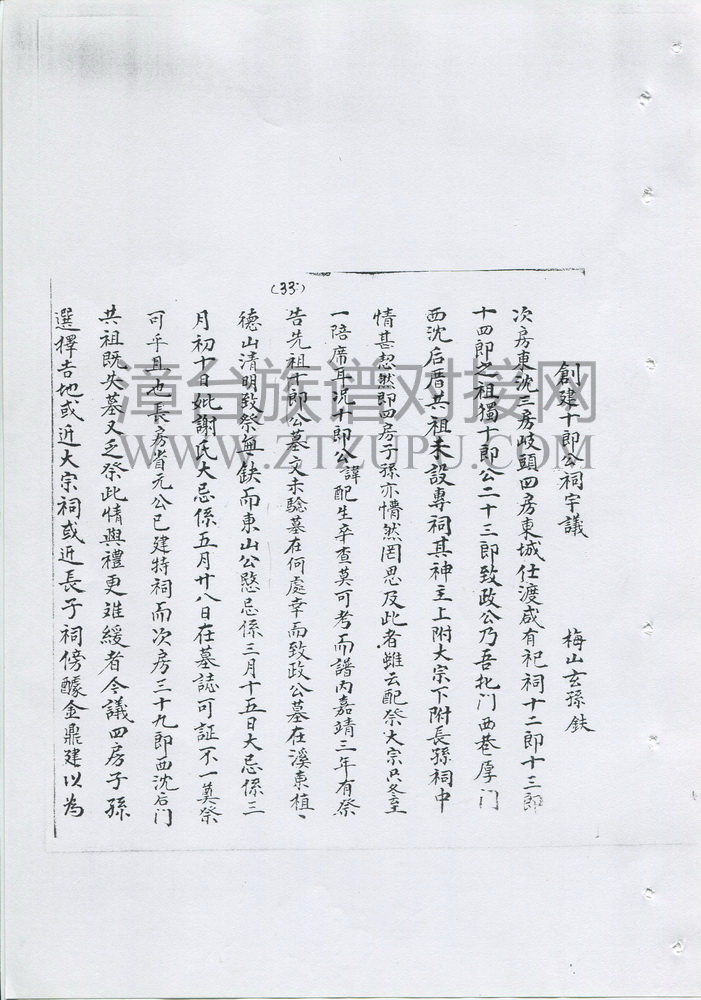 (33)
創建十郎公祠宇議 梅山玄孫鈇
次房東沈三房岐頭四房東城仕渡咸有祀祠十二郎十三郎
十四郎之祖獨十郎公二十三郎致政公乃吾北门西巷厚门
西沈后厝共祖未設專祠其神主上附大宗下附長孫祠中
情甚恝然即四房子孫亦懵然罔思及此者雖云配祭大宗只冬至
一陪席耳况十郎公諱配生卒查莫可考而譜内嘉靖三年有祭
告先祖十郎公墓文未驗墓在何處幸而致政公墓在溪東植、
德山清明致祭無缺而東山公愍忌係三月十五日大忌係三
月初十日妣謝氏大忌係五月廿八日在墓誌可証不一奠祭
可乎且也長房省元公已建特祠而次房三十九郎西沈后门
共祖既失墓又乏祭此情與禮更难緩者今議四房子孫
選擇吉地或近大宗祠或近長子祠傍醵金鼎建以為
漳台族谱对接网
WWW.ZTZUPU.COM